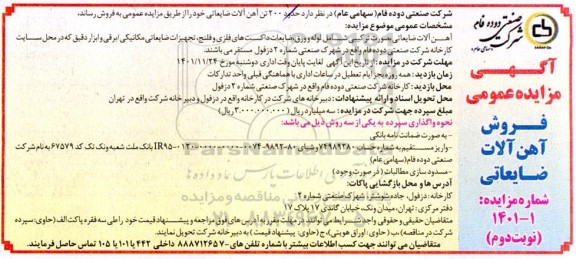 شرکت صنعتی دوده فام
(سهامی عام)
آگهی
مزایده عمومی
فروش
آهن آلات
ضایعاتی
شماره مزایده:
۱۴۰۱-۱
(نوبت دوم)
شرکت صنعتی دوده فام (سهامی عام) در نظر دارد حدود ۲۰۰ تن آهن آلات ضایعاتی خود را از طریق مزایده عمومی به فروش رساند.
مشخصات عمومی موضوع مزایده:
آهن آلات ضایعاتی لوله و ورق ضایعات داکت های فلزی و فلنج، تجهیزات ضایعاتی مکانیکی/برقی و ابزار دقیق که در محل سایت
کارخانه شرکت صنعتی دوده فام واقع در شهرک صنعتی شماره ۲ دزفول مستقر می باشند.
مهلت شرکت در مزایده: از تاریخ اولین آگهی لغایت پایان وقت اداری دوشنبه مورخ ۱۴۰۱/۱۱/۲۴
زمان بازدید: همه روزه بجز ایام تعطیل در ساعات اداری با هماهنگی قبلی واحد تدارکات
محل بازدید: کارخانه شرکت صنعتی دوده فام واقع در شهرک صنعتی شماره ۲ دزفول
محل تحویل اسناد و ارائه پیشنهادات: دبیرخانه های شرکت در کارخانه واقع در دزفول و دبیرخانه شرکت واقع در تهران
مبلغ سپرده جهت شرکت در مزایده: سه میلیارد ریال (۳.۰۰۰.۰۰۰.۰۰۰ ریال)
نحوه واگذاری سپرده به یکی از سه روش ذیل می باشد:
- به صورت ضمانت نامه بانکی
- واریز مستقیم به شماره حساب بانک ملت شعبه ونک تک کد ۶۷۵۷۹ به نام شرکت
صنعتی دوده فام (سهامی عام)
- مسدود سازی مطالبات (در صورت وجود)
آدرس ها و محل بازگشایی پاکات:
کارخانه: دزفول، جاده شوشتر، شهرک صنعتی شماره ۲
دفتر مرکزی: تهران، میدان ونک، خیابان گاندی ۱۷ پلاک ۱۷
متقاضیان حقیقی و حقوقی واجد شرایط می توانند به آدرس های فوق مراجعه و پیشنهاد قیمت خود را طی سه فقره پاکت الف (حاوی: سپرده
شرکت در مناقصه)، ب (حاوی: اوراق هویتی)، ج (حاوی: پیشنهاد قیمت) به دبیرخانه شرکت تحویل نمایند.
متقاضیان می توانند جهت کسب اطلاعات بیشتر با شماره تلفن های ۸۸۸۷۱۲۶۵۷- داخلی ۴۴۲ یا ۱۰۱ یا ۱۰۵ تماس حاصل فرمایند.